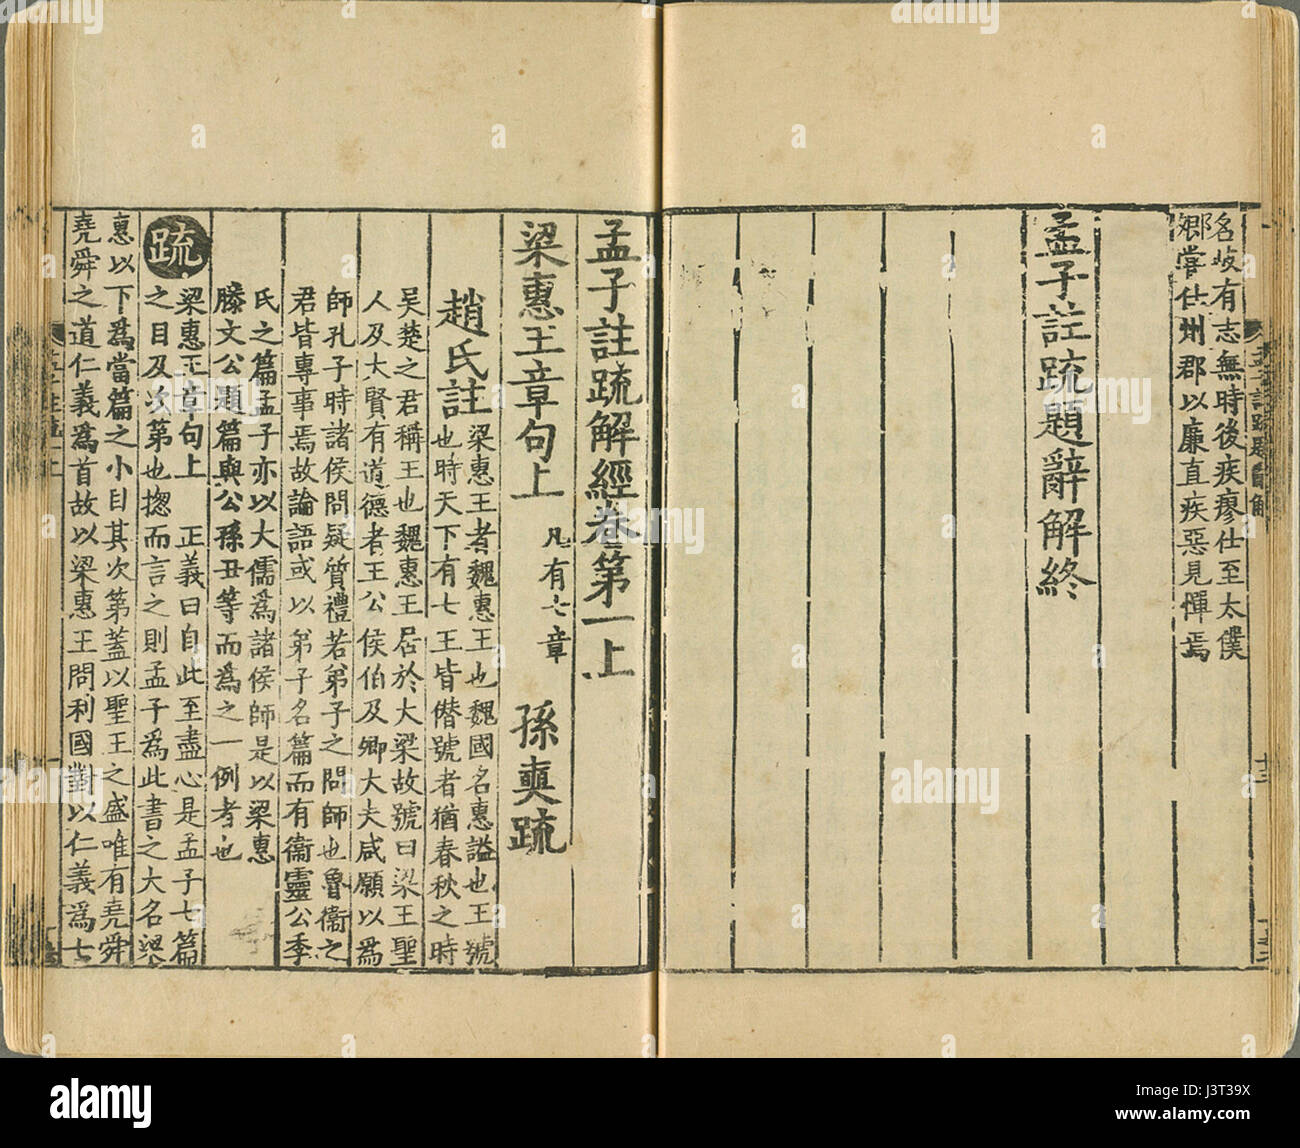 名岐有志無時後疾瘳仕至太僕
卿嘗仕州郡以廉直疾惡見憚焉
孟子註疏題辭解終
孟子註疏解經卷第一上
梁惠王章句上 凡有七章 孫奭疏
趙氏註
梁惠王者魏惠王也魏國名惠謚也王號
也時天下有七王皆僣號者猶春秋之時
吳楚之君稱王也魏惠王居於大梁故號曰梁王聖
人及大賢有道德者王公侯伯及卿大夫咸願以為
師孔子時諸侯問疑質禮若弟子之問師也魯衞之
君皆專事焉故論語或以弟子名篇而有衞靈公季
氏之篇孟子亦以大儒為諸侯師是以梁惠
滕文公題篇與公孫丑等而為之一例者也
疏
梁惠王章句上 正義曰自此至盡心是孟子七篇
之目及次第也揔而言之則孟子為此書之大名梁
惠以下為當篇之小目其次第蓋以聖王之盛唯有堯舜
堯舜之道仁義為首故以梁惠王問利國對以仁義為七
a alamy
alamy
Image ID: J3T39X
www.alamy.com